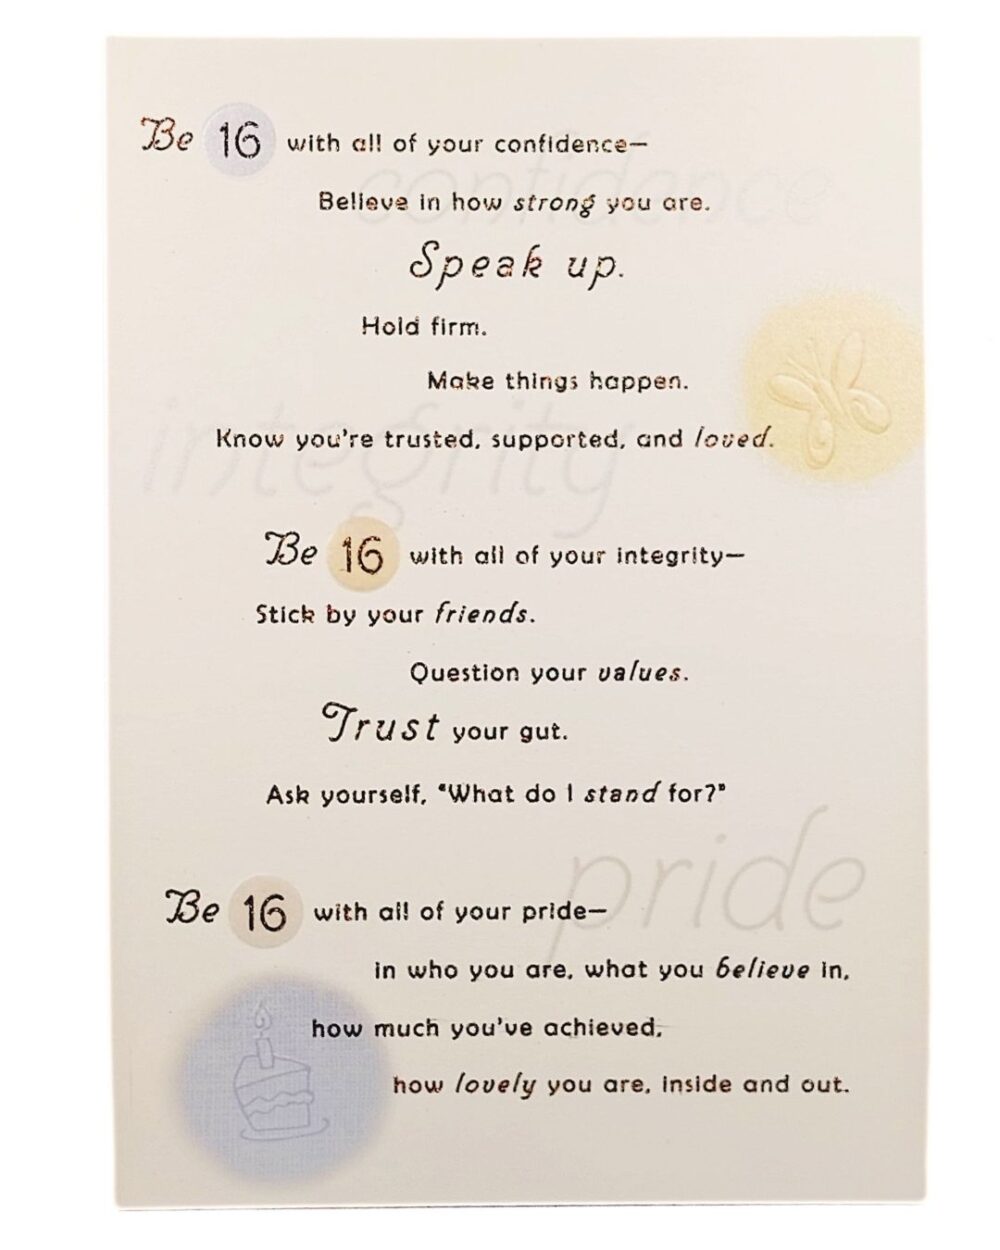 Be 16 with all of your confidence—
confidence
Believe in how strong you are.
Speak up.
Hold firm.
Make things happen.
integrity
Know you're trusted, supported, and loved.
Be 16 with all of your integrity—
Stick by your friends.
Question your values.
Trust your gut.
Ask yourself, "What do I stand for?"
pride
Be 16 with all of your pride—
in who you are, what you believe in,
how much you've achieved,
how lovely you are, inside and out.